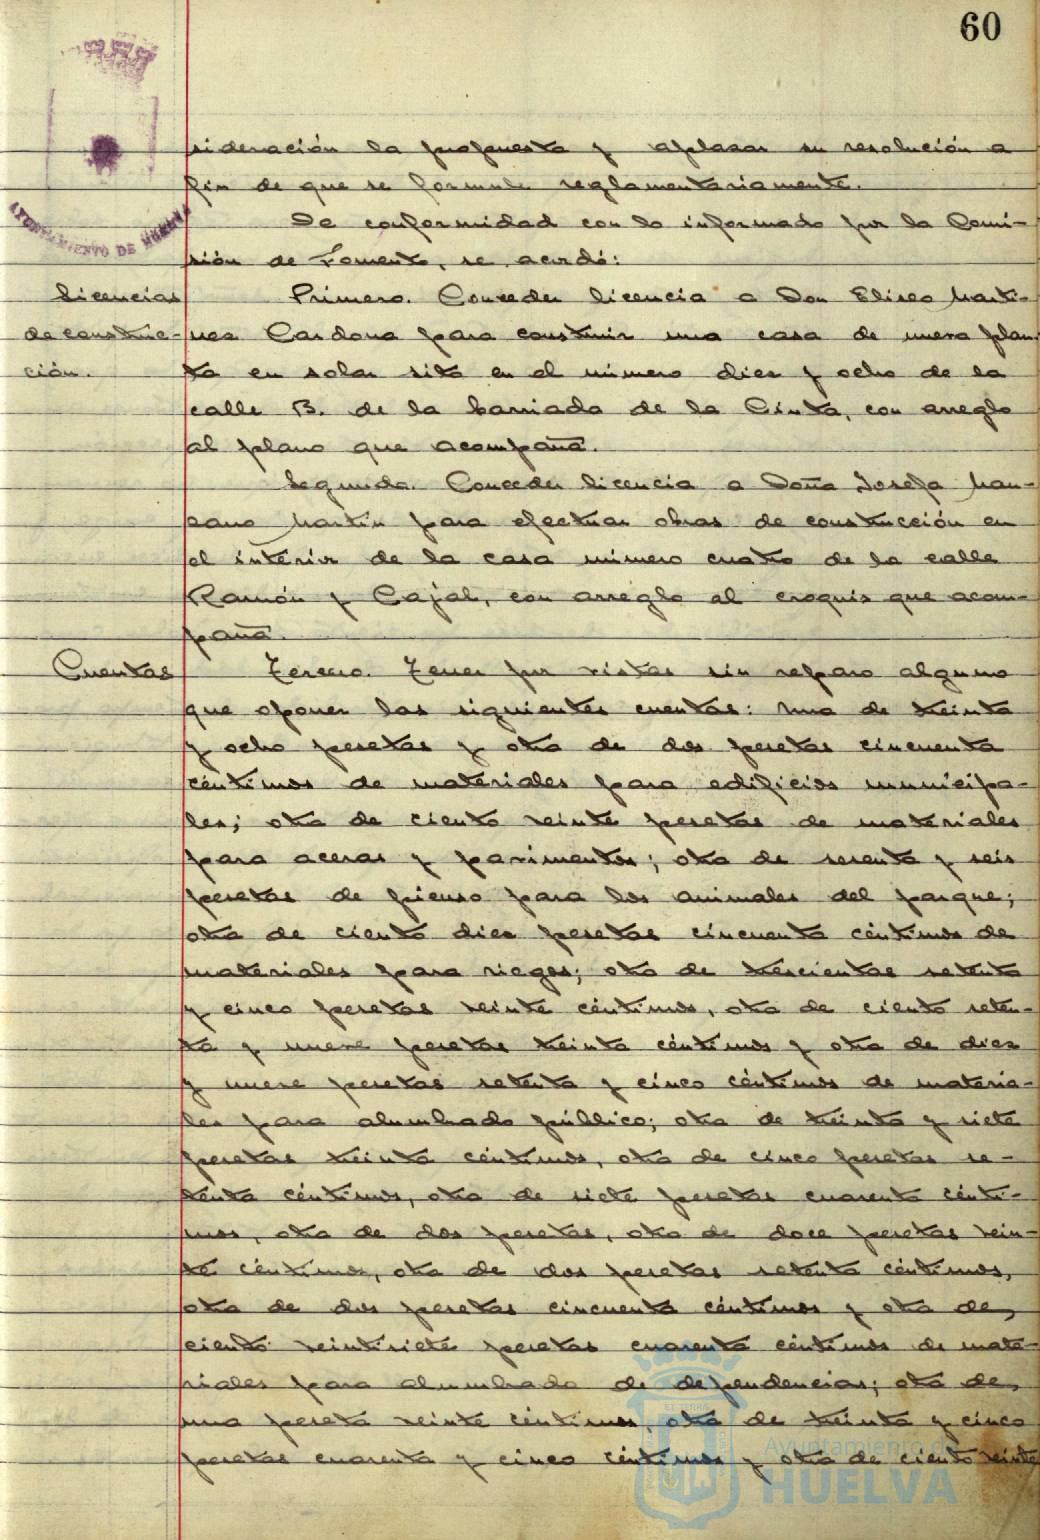 60
AYUNTAMIENTO DE HUELVA
sideración la propuesta y aplazar su resolución a
fin de que se formule reglamentariamente.
De conformidad con lo informado por la Comi-
sión de Fomento, se acordó:
Licencias
de construc-
ción.
Primero. Conceder licencia a Don Eliseo Martí-
nez Cardona para construir una casa de nueva plan-
ta en solar sito en el número diez y ocho de la
calle B. de la barriada de la Cinta, con arreglo
al plano que acompaña.
Segundo. Conceder licencia a Doña Josefa Man-
zano Martín para efectuar obras de construcción en
el interior de la casa número cuatro de la calle
Ramón y Cajal, con arreglo al croquis que acom-
paña.
Cuentas
Tercero. Tener por vistas sin reparo alguno
que oponer las siguientes cuentas: una de treinta
y ocho pesetas y otra de dos pesetas cincuenta
céntimos de materiales para edificios municipa-
les; otra de ciento veinte pesetas de materiales
para aceras y pavimentos; otra de sesenta y seis
pesetas de pienso para los animales del parque;
otra de ciento diez pesetas cincuenta céntimos de
materiales para riegos; otra de trescientas setenta
y cinco pesetas veinte céntimos, otra de ciento seten-
ta y nueve pesetas treinta céntimos y otra de diez
y nueve pesetas setenta y cinco céntimos de materia-
les para alumbrado público; otra de treinta y siete
pesetas treinta céntimos, otra de cinco pesetas se-
tenta céntimos, otra de siete pesetas cuarenta cénti-
mos, otra de dos pesetas, otra de doce pesetas vein-
te céntimos, otra de dos pesetas setenta céntimos,
otra de dos pesetas cincuenta céntimos y otra de
ciento veintisiete pesetas cuarenta céntimos de mate-
riales para alumbrado de dependencias; otra de
una peseta veinte céntimos, otra de treinta y cinco
pesetas cuarenta y cinco céntimos y otra de ciento veinte
Ayuntamiento de
HUELVA